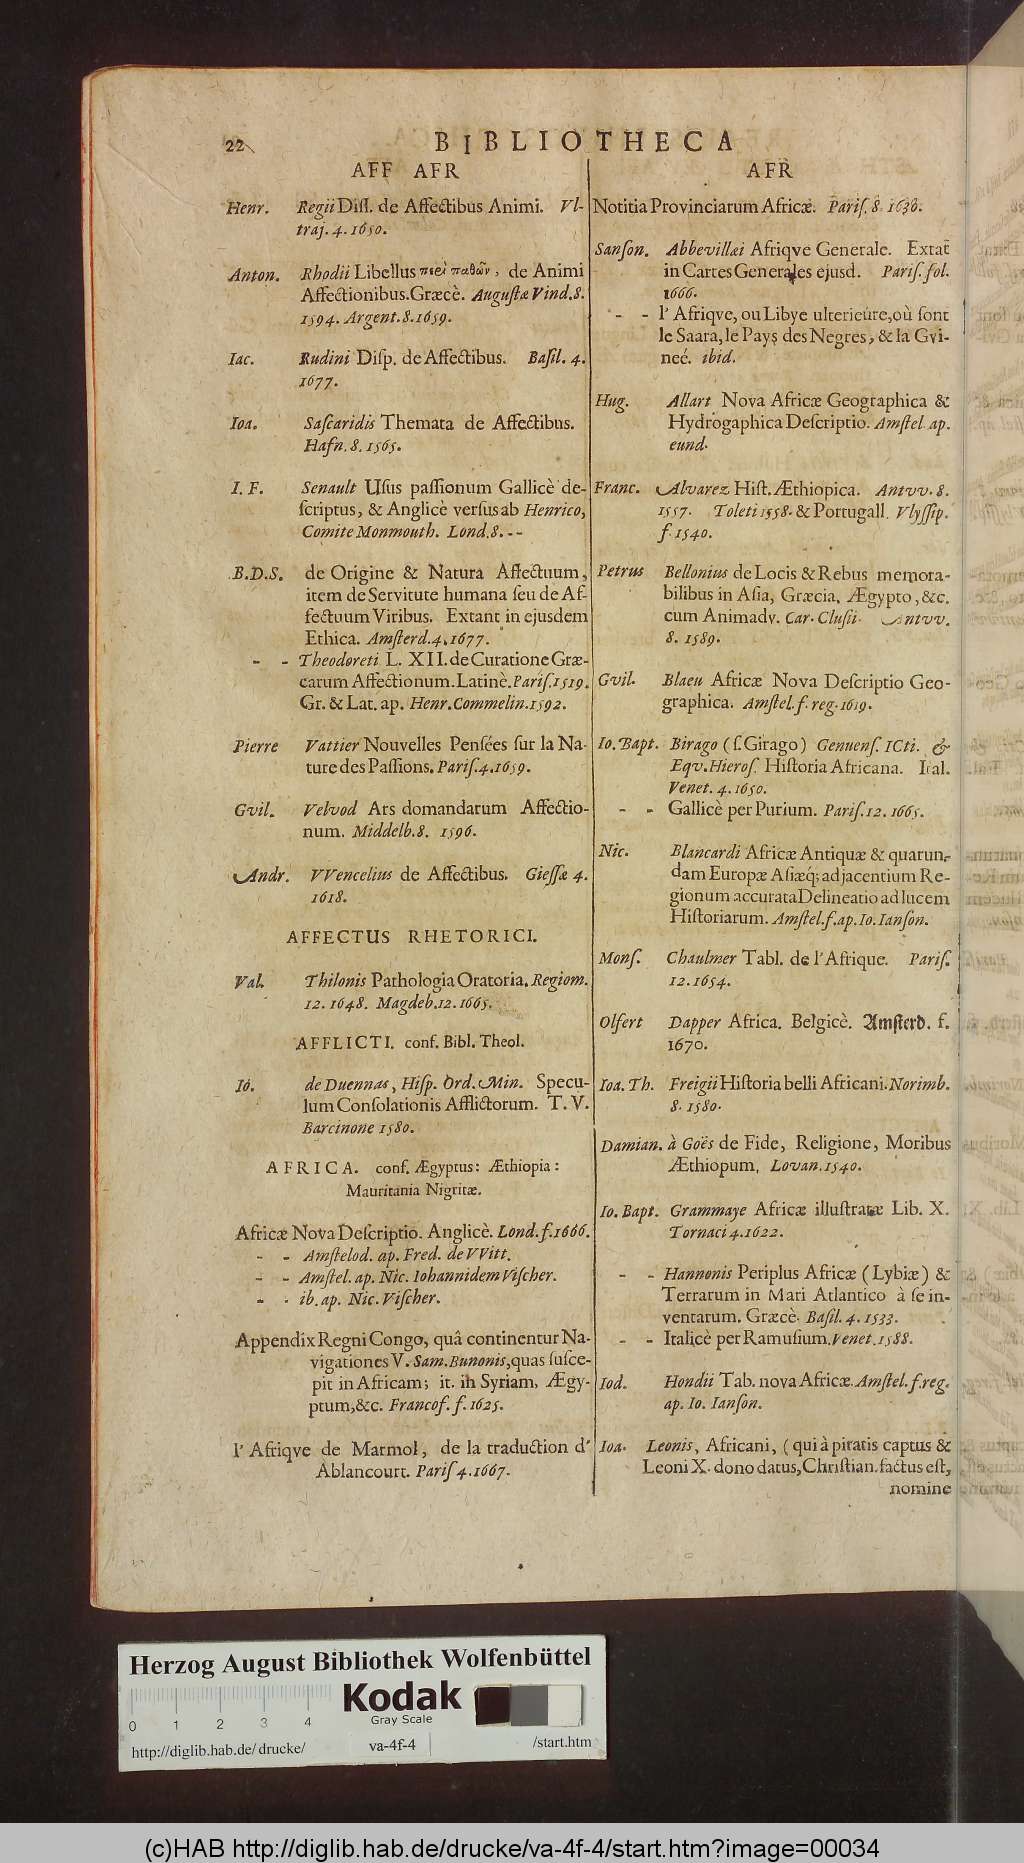 22
BIBLIOTHECA
AFF AFR
Henr. Regii Diſſ. de Affectibus Animi. Vl-
traj. 4. 1650.
Anton. Rhodii Libellus περὶ παθῶν, de Animi
Affectionibus. Græcè. Auguſtæ Vind. 8.
1594. Argent. 8. 1659.
Iac. Rudini Diſp. de Affectibus. Baſil. 4.
1677.
Ioa. Saſcaridis Themata de Affectibus.
Hafn. 8. 1565.
I. F. Senault Uſus paſſionum Gallicè de-
ſcriptus, & Anglicè verſus ab Henrico,
Comite Monmouth. Lond. 8. --
B.D.S. de Origine & Natura Affectuum,
item de Servitute humana ſeu de Af-
fectuum Viribus. Extant in ejusdem
Ethica. Amſterd. 4. 1677.
- - Theodoreti L. XII. de Curatione Græ-
carum Affectionum. Latinè. Pariſ. 1519.
Gr. & Lat. ap. Henr. Commelin. 1592.
Pierre Vattier Nouvelles Penſées ſur la Na-
ture des Paſſions. Pariſ. 4. 1659.
Gvil. Velvod Ars domandarum Affectio-
num. Middelb. 8. 1596.
Andr. VVencelius de Affectibus. Gieſſæ 4.
1618.
AFFECTUS RHETORICI.
Val. Thilonis Pathologia Oratoria. Regiom.
12. 1648. Magdeb. 12. 1665.
AFFLICTI. conf. Bibl. Theol.
Io. de Duennas, Hiſp. Ord. Min. Specu-
lum Conſolationis Afflictorum. T. V.
Barcinone 1580.
AFRICA. conf. Ægyptus: Æthiopia:
Mauritania Nigritæ.
Africæ Nova Deſcriptio. Anglicè. Lond. f. 1666.
- - Amſtelod. ap. Fred. de VVitt.
- - Amſtel. ap. Nic. Iohannidem Viſcher.
- - ib. ap. Nic. Viſcher.
Appendix Regni Congo, quâ continentur Na-
vigationes V. Sam. Bunonis, quas ſuſce-
pit in Africam; it. in Syriam, Ægy-
ptum, &c. Francof. f. 1625.
l' Afriqve de Marmol, de la traduction d'
Ablancourt. Pariſ 4. 1667.
AFR
Notitia Provinciarum Africæ. Pariſ. 8. 1638.
Sanſon. Abbevillæi Afriqve Generale. Extat
in Cartes Generales ejusd. Pariſ. fol.
1666.
- - l' Afriqve, ou Libye ulterieure, où ſont
le Saara, le Pays des Negres, & la Gvi-
neé. ibid.
Hug. Allart Nova Africæ Geographica &
Hydrogaphica Deſcriptio. Amſtel. ap.
eund.
Franc. Alvarez Hiſt. Æthiopica. Antvv. 8.
1557. Toleti 1558. & Portugall. Vlyſſip.
f. 1540.
Petrus Bellonius de Locis & Rebus memora-
bilibus in Aſia, Græcia, Ægypto, &c.
cum Animadv. Car. Cluſii. Antvv.
8. 1589.
Gvil. Blaeu Africæ Nova Deſcriptio Geo-
graphica. Amſtel. f. reg. 1619.
Io. Bapt. Birago (ſ. Girago) Genuenſ. ICti. &
Eqv. Hieroſ. Hiſtoria Africana. Ital.
Venet. 4. 1650.
- - Gallicè per Purium. Pariſ. 12. 1665.
Nic. Blancardi Africæ Antiquæ & quarun-
dam Europæ Aſiæq; adjacentium Re-
gionum accurata Delineatio ad lucem
Hiſtoriarum. Amſtel. f. ap. Io. Ianſon.
Monſ. Chaulmer Tabl. de l'Afrique. Pariſ.
12. 1654.
Olfert Dapper Africa. Belgicè. Amſterd. f.
1670.
Ioa. Th. Freigii Hiſtoria belli Africani. Norimb.
8. 1580.
Damian. à Goës de Fide, Religione, Moribus
Æthiopum. Lovan. 1540.
Io. Bapt. Grammaye Africæ illuſtratæ Lib. X.
Tornaci 4. 1622.
- - Hannonis Periplus Africæ (Lybiæ) &
Terrarum in Mari Atlantico à ſe in-
ventarum. Græcè. Baſil. 4. 1533.
- - Italicè per Ramuſium. Venet. 1588.
Iod. Hondii Tab. nova Africæ. Amſtel. f. reg.
ap. Io. Ianſon.
Ioa. Leonis, Africani, (qui à piratis captus &
Leoni X. dono datus, Chriſtian. factus eſt,
nomine
Herzog August Bibliothek Wolfenbüttel
0 1 2 3 4
Kodak
Gray Scale
http://diglib.hab.de/drucke/ va-4f-4 /start.htm
(c)HAB http://diglib.hab.de/drucke/va-4f-4/start.htm?image=00034